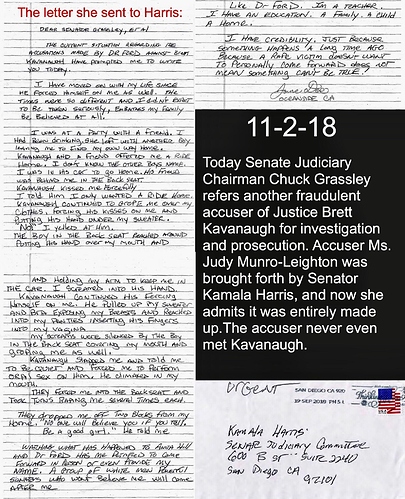 The letter she sent to Harris:
DEAR SENATOR GRASSLEY, ET AL
THE CURRENT SITUATION REGARDING THE
ACCUSATIONS MADE BY DR FORD AGAINST BRETT
KAVANAUGH HAVE PROMPTED ME TO WRITE
YOU TODAY.
I HAVE MOVED ON WITH MY LIFE SINCE
HE FORCED HIMSELF ON ME AS WELL. THE
TIMES WERE SO DIFFERENT AND I DIDN'T EXPECT
TO BE TAKEN SERIOUSLY, EMBARRASS MY FAMILY
BE BELIEVED AT ALL.
I WAS AT A PARTY WITH A FRIEND. I
HAD BEEN DRINKING. SHE LEFT WITH ANOTHER BOY
LEAVING ME TO FIND MY OWN WAY HOME.
KAVANAUGH AND A FRIEND OFFERED ME A RIDE
HOME. I DON'T KNOW THE OTHER BOYS NAME.
I WAS IN HIS CAR TO GO HOME. HIS FRIEND
WAS BEHIND ME IN THE BACK SEAT
KAVANAUGH KISSED ME FORCEFULLY
I TOLD HIM I ONLY WANTED A RIDE HOME.
KAVANAUGH CONTINUED TO GROPE ME OVER MY
CLOTHES, FORCING HIS KISSES ON ME AND
PUTTING HIS HAND UNDER MY SWEATER.
"NO" I YELLED AT HIM.
THE BOY IN THE BACK SEAT REACHED AROUND
PUTTING HIS HAND OVER MY MOUTH AND
AND HOLDING MY ARM TO KEEP ME IN
THE CAR. I SCREAMED INTO HIS HAND.
KAVANAUGH CONTINUED HIS FORCING
HIMSELF ON ME. HE PULLED UP MY SWEATER
AND BRA EXPOSING MY BREASTS AND REACHED
INTO MY PANTIES INSERTING HIS FINGERS
INTO MY VAGINA.
MY SCREAMS WERE SILENCED BY THE BOY
IN THE BACK SEAT COVERING MY MOUTH AND
GROPING ME AS WELL.
KAVANAUGH SLAPPED ME AND TOLD ME
TO BE QUIET AND FORCED ME TO PERFORM
ORAL SEX ON HIM. HE CLIMAXED IN MY
MOUTH.
THEY FORCED ME INTO THE BACKSEAT AND
TOOK TURNS RAPING ME SEVERAL TIMES EACH.
THEY DROPPED ME OFF TWO BLOCKS FROM MY
HOME. "NO ONE WILL BELIEVE YOU IF YOU TELL.
BE A GOOD GIRL." HE TOLD ME
WATCHING WHAT HAS HAPPENED TO ANITA HILL
AND DR FORD HAS ME PETRIFIED TO COME
FORWARD IN PERSON OR EVEN PROVIDE MY
NAME. A GROUP OF WHITE MEN POWERFUL
SENATORS WHO WONT BELIEVE ME WILL COME
AFTER ME
LIKE DR FORD. IM A TEACHER.
I HAVE AN EDUCATION, A FAMILY, A CHILD
A HOME.
I HAVE CREDIBILITY. JUST BECAUSE
SOMETHING HAPPENS A LONG TIME AGO
BECAUSE A RAPE VICTIM DOESNT WANT
TO PERSONALLY COME FORWARD DOES NOT
MEAN SOMETHING CAN'T BE TRUE.
Jane Doe
OCEANSIDE CA
11-2-18
Today Senate Judiciary
Chairman Chuck Grassley
refers another fraudulent
accuser of Justice Brett
Kavanaugh for investigation
and prosecution. Accuser Ms.
Judy Munro-Leighton was
brought forth by Senator
Kamala Harris, and now she
admits it was entirely made
up.The accuser never even
met Kavanaugh.
URGENT
SAN DIEGO CA 920
19 SEP 2018 PM 5 L
KAMALA HARRIS
SENAR JUDICIARY COMMITTEE
600 B ST SUITE 2240
SAN DIEGO CA
92101